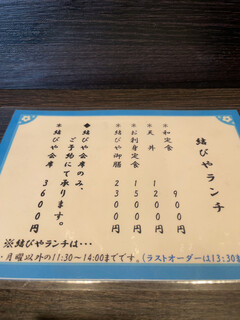 結びやランチ
＊和定食 900円
＊天丼 1200円
＊お刺身定食 1500円
＊結びや御膳 2300円
◆結びや会席のみ、
ご予約にて承ります。
＊結びや会席 3600円
※結びやランチは・・・
・月曜以外の11:30～14:00までです。(ラストオーダーは13:30ま